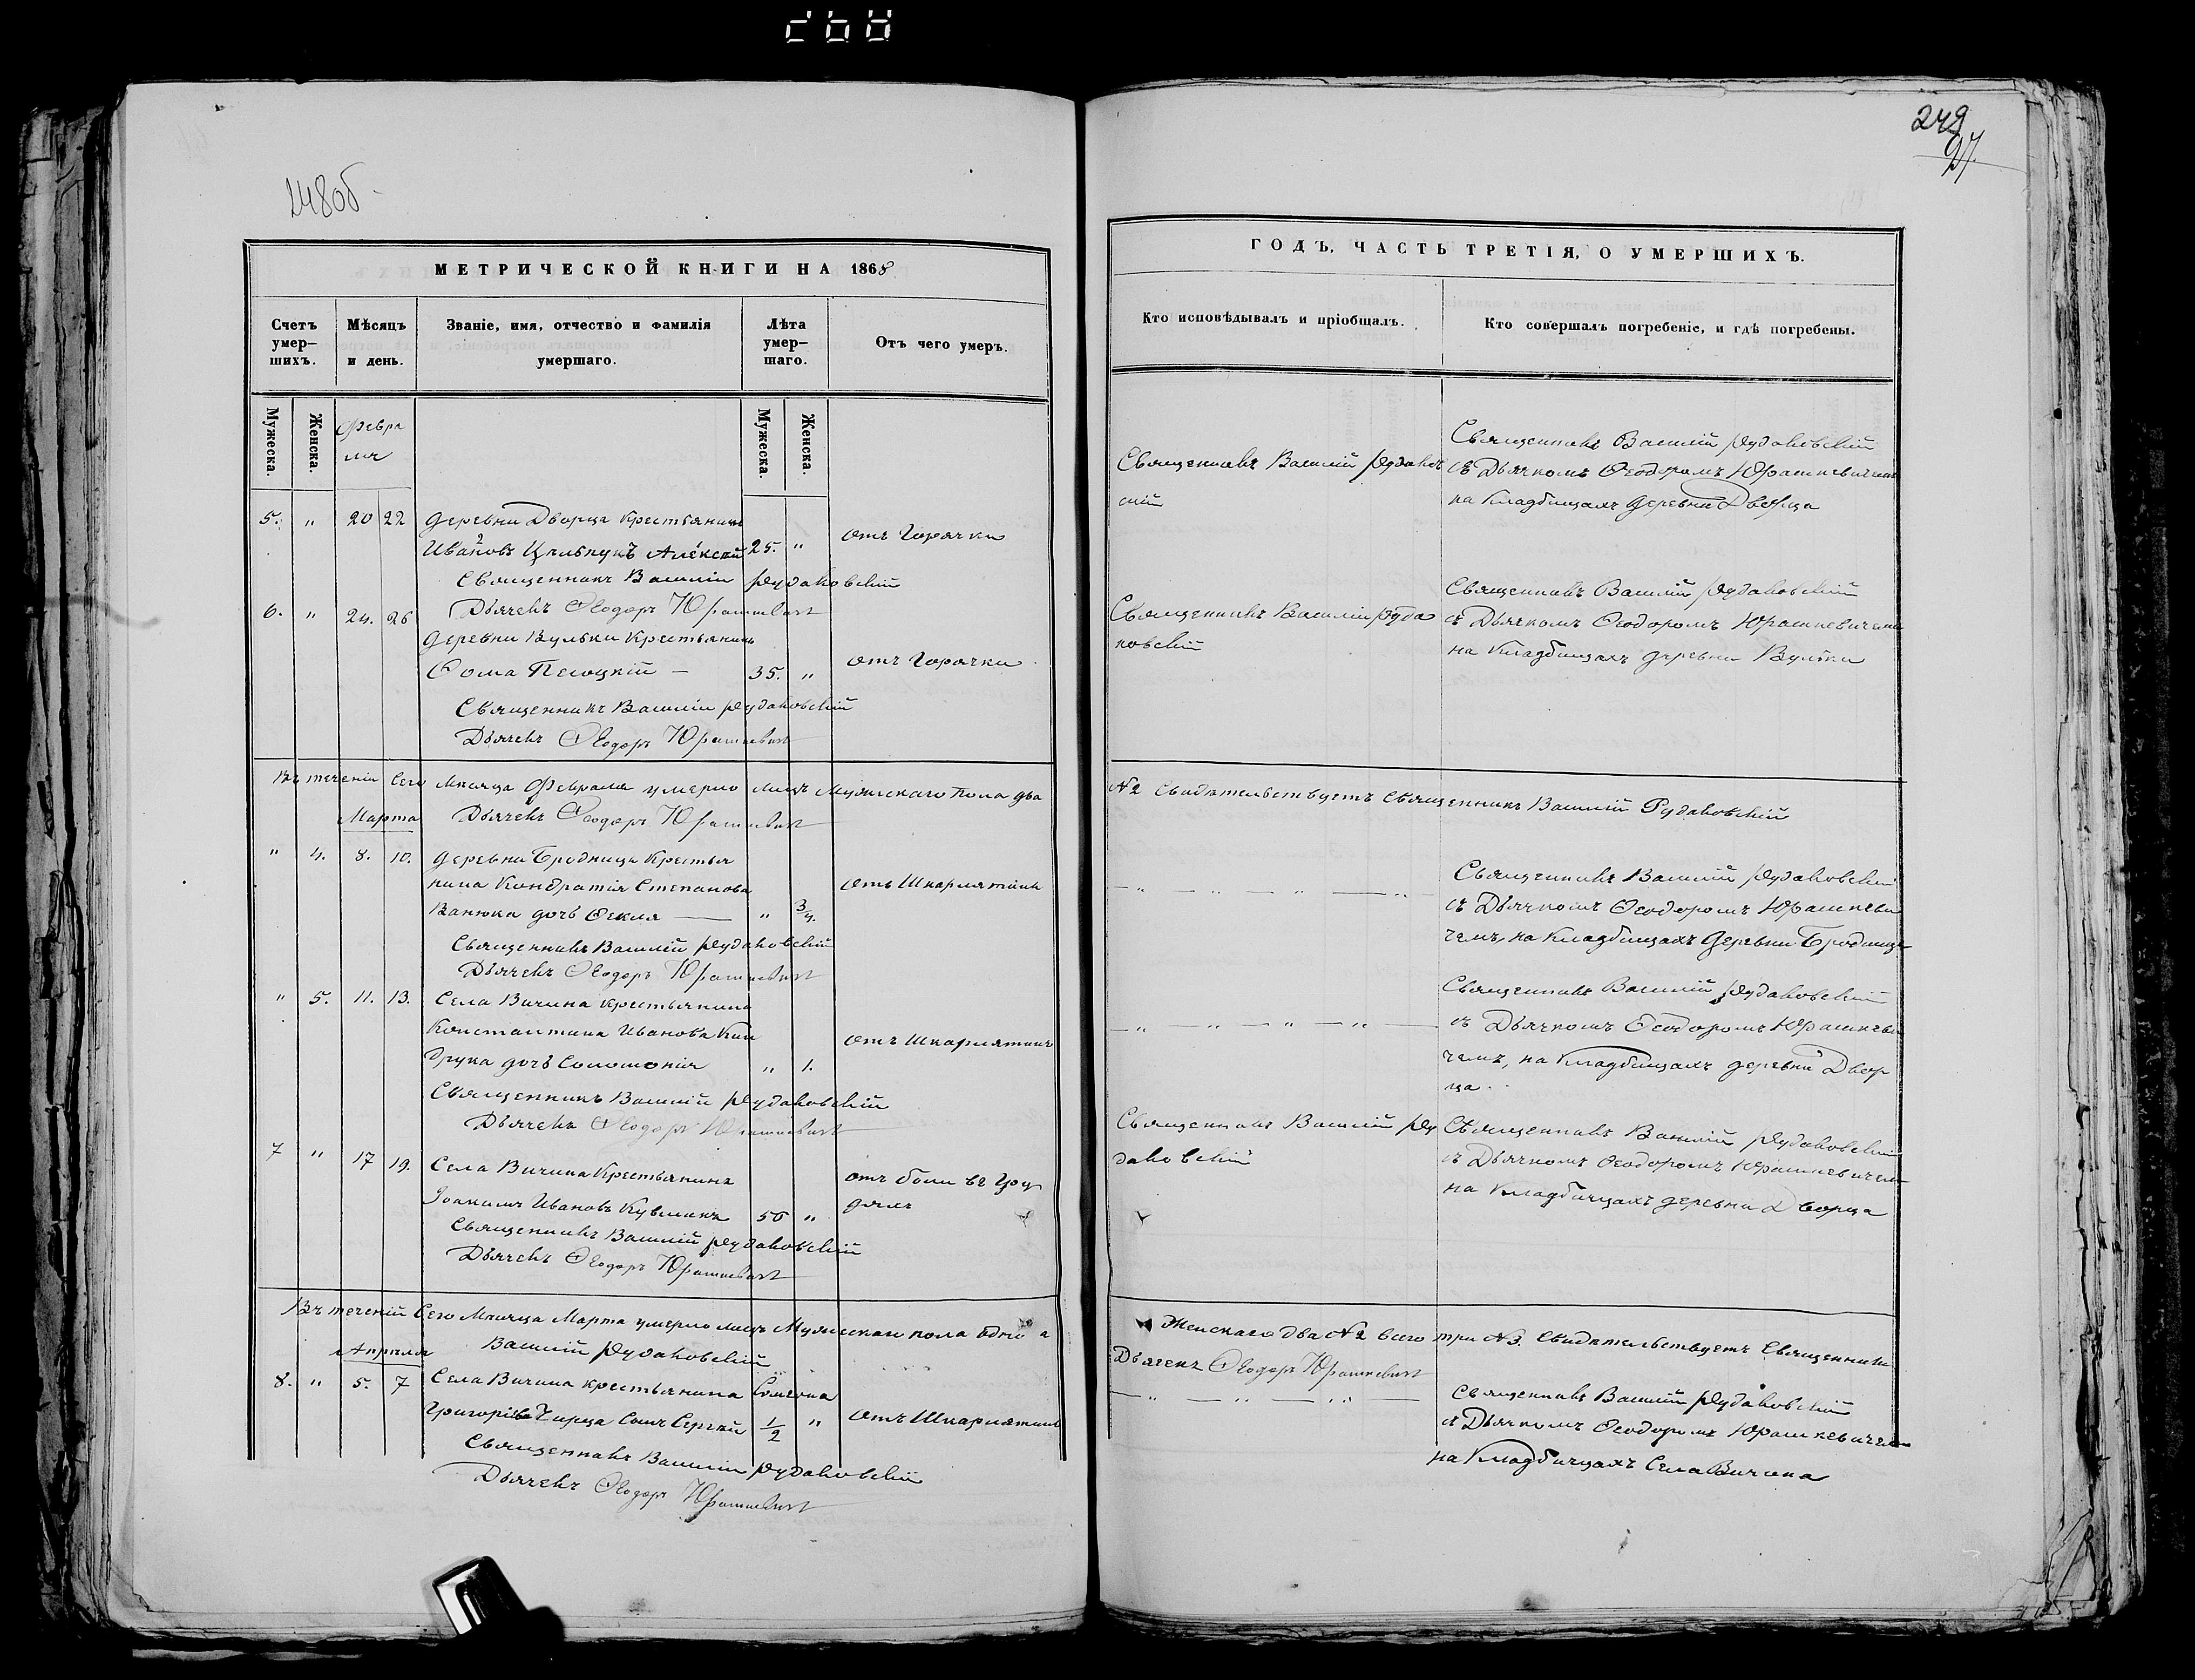 248об
МЕТРИЧЕСКОЙ КНИГИ НА 1868
Счетъ умер-шихъ.
Мѣсяцъ и день.
Званіе, имя, отчество и фамилія умершаго.
Лѣта умер-шаго.
Отъ чего умеръ.
Мужеска.
Женска.
Февра
ля
Мужеска.
Женска.
5. " 20 22 деревни Дворца Крестьянинъ
Ивановъ Алексѣй 25. " отъ Горячки
Священникъ Василій Рудаковскій
Дьячекъ Ѳеодоръ Юрашкевичъ
6. " 24. 26
деревни Вульки Крестьянинъ
Ѳома Песоцкій — 35. " отъ Горячки
Священникъ Василій Рудаковскій
Дьячекъ Ѳеодоръ Юрашкевичъ
Въ теченіи Сего Мѣсяца Февраля умерло лицъ Мужескаго пола два
Марта Дьячекъ Ѳеодоръ Юрашкевичъ
" 4. 8. 10. деревни Бродница Крестья
нина Кондратія Степанова отъ Шкарлятины
Ванюка дочь Ѳекла — " 3/4.
Священникъ Василій Рудаковскій
Дьячекъ Ѳеодоръ Юрашкевичъ
" 5. 11. 13. Села Вичина крестьянина
Константина Иванова Кин отъ Шкарлятины
друка дочь Соломонія " 1.
Священникъ Василій Рудаковскій
Дьячекъ Ѳеодоръ Юрашкевичъ
7 " 17 19. Села Вичина Крестьянинъ отъ боли въ гру
дяхъ
Іоакимъ Ивановъ 56 "
Священникъ Василій Рудаковскій
Дьячекъ Ѳеодоръ Юрашкевичъ
Въ теченій Сего Мѣсяца Марта умерло лицъ Мужескаго пола одно а
Апрѣля Василій Рудаковскій
8. " 5. 7 Села Вичина крестьянина Симеона
Григоріева Чирца Сынъ Сергѣй 1/2 " отъ Шкарлятины
Священникъ Василій Рудаковскій
Дьячекъ Ѳеодоръ Юрашкевичъ
249
97
ГОДЪ, ЧАСТЬ ТРЕТІЯ, О УМЕРШИХЪ.
Кто исповѣдывалъ и пріобщалъ.
Кто совершалъ погребеніе, и гдѣ погребены.
Священникъ Василій Рудаков
скій
Священникъ Василій Рудаковскій
съ Дьячкомъ Ѳеодоромъ Юрашкевичемъ
на Кладбищахъ деревни Дворца
Священникъ Василій Руда
ковскій
Священникъ Василій Рудаковскій
съ Дьячкомъ Ѳеодоромъ Юрашкевичемъ
на Кладбищахъ деревни Вульки
№2 Свидѣтельствуетъ Священникъ Василій Рудаковскій
— " — " — " — "
Священникъ Василій Рудаковскій
съ Дьячкомъ Ѳеодоромъ Юрашкеви
чемъ, на Кладбищахъ деревни Бродницы
— " — " — " — " —
Священникъ Василій Рудаковскій
съ Дьячкомъ Ѳеодоромъ Юрашкеви
чемъ, на Кладбищахъ деревни Двор
ца.
Священникъ Василій Ру
даковскій
Священникъ Василій Рудаковскій
съ Дьячкомъ Ѳеодоромъ Юрашкевичемъ
на Кладбищахъ деревни Дворца
Женскаго два №2 всего три №3. Свидѣтельствуетъ Священникъ
Дьячекъ Ѳеодоръ Юрашкевичъ
— " — " — " —
Священникъ Василій Рудаковскій
съ Дьячкомъ Ѳеодоромъ Юрашкевичемъ
на Кладбищахъ Села Вичина